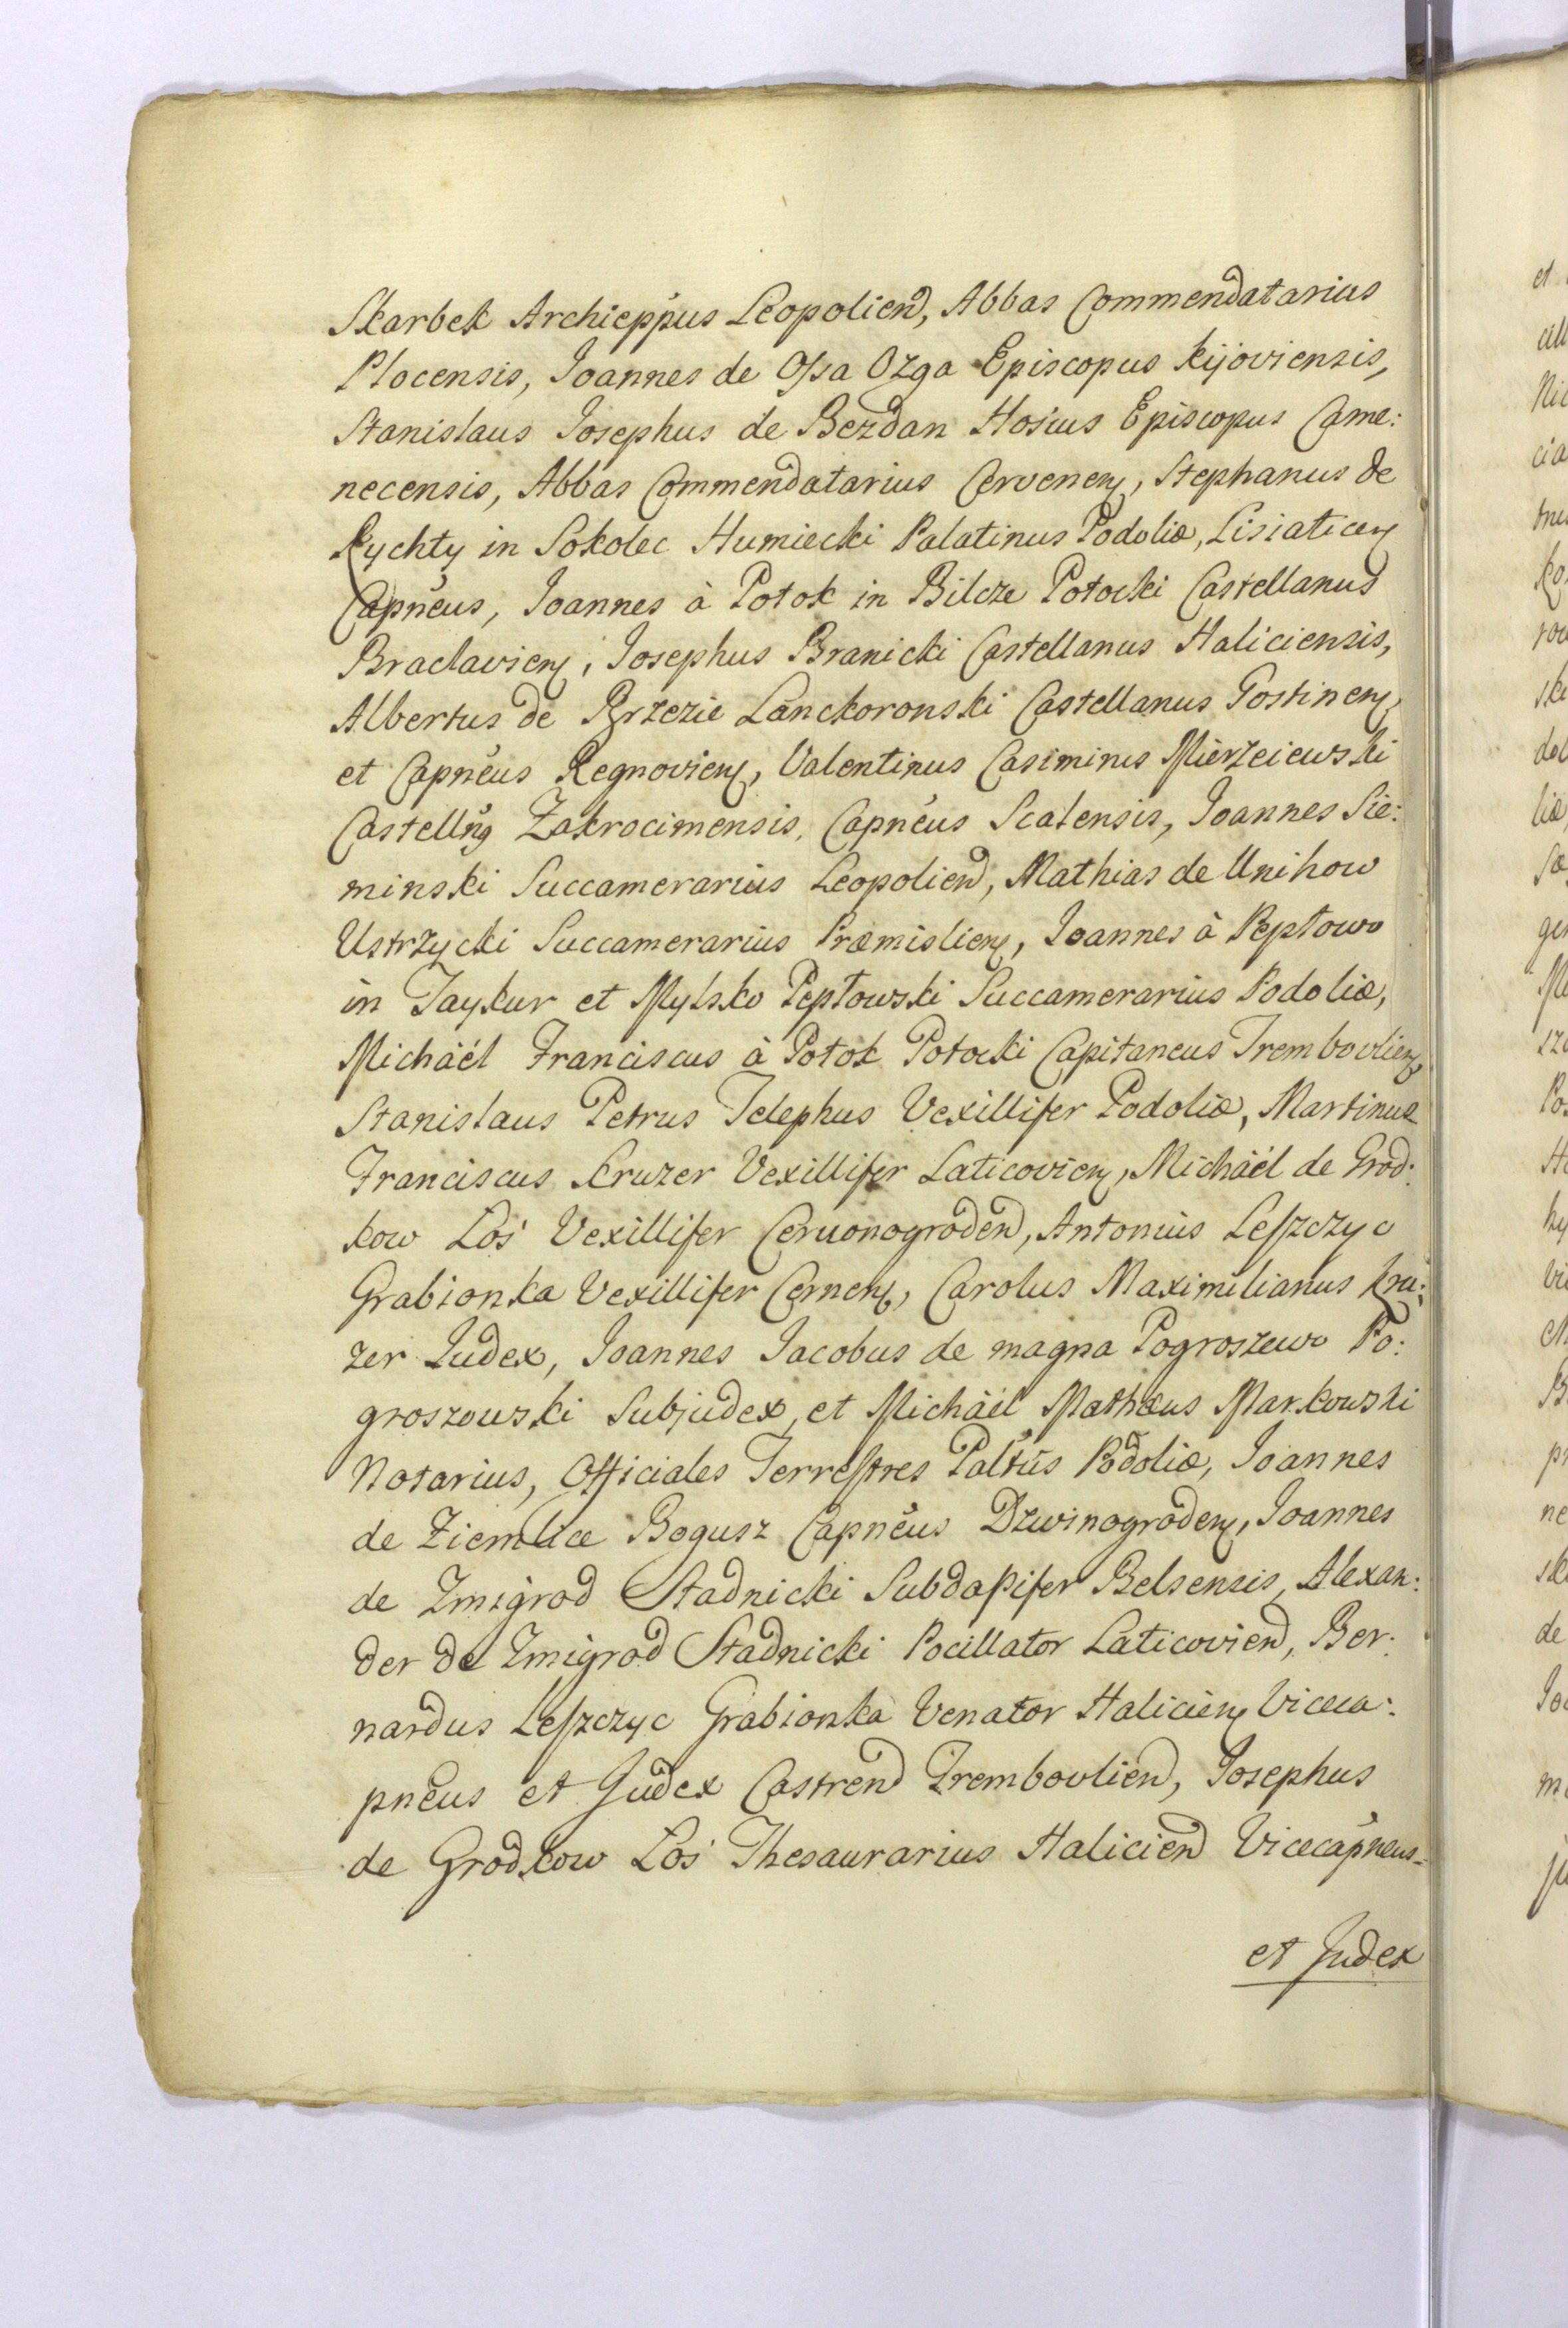 Skarbek Archieppus Leopolien, Abbas Commendatarius
Plocensis, Joannes de Ossa Ozga Episcopus Kijoviensis,
Stanislaus Josephus de Bezdan Hosius Episcopus Came:
necensis, Abbas Commendatarius Cervenen, Stephanus de
Rychty in Sokolec Humiecki Palatinus Podoliæ, Lisiaticen
Capnëus, Joannes à Potok in Bilcze Potocki Castellanus
Braclavien, Josephus Branicki Castellanus Haliciensis,
Albertus de Brzezie Lanckoronski Castellanus Gostinen,
et Capnëus Regnovien, Valentinus Casimirus Mierzeiewski
Castellng Zakrocimensis, Capnëus Scalensis, Joannes Sie:
minski Succamerarius Leopolien, Mathias de Unihow
Ustrzycki Succamerarius Præmislien, Joannes à Peptowo
in Taykur et Mylsko Peptowski Succamerarius Podoliæ,
Michäél Franciscus à Potok Potocki Capitaneus Trembovlien,
Stanislaus Petrus Telephus Vexillifer Podoliæ, Martinus
Franciscus Kruzer Vexillifer Laticovien, Michäél de Grod:
kow Łoś Vexillifer Cervonogroden, Antonius Leszczyc
Grabionka Vexillifer Cernen, Carolus Maximilianus Kru:
zer Judex, Joannes Jacobus de magna Pogroszewo Po:
groszewski Subjudex, et Michäél Mathæus Markowski
Notarius, Officiales Terrestres Paltus Podoliæ, Joannes
de Ziemblice Bogusz Capnëus Dzwinogroden, Joannes
de Zmigrod Stadnicki Subdapifer Belsensis, Alexan:
der de Zmigrod Stadnicki Pocillator Laticovien, Ber:
nardus Leszczyc Grabionka Venator Halicien Viceca:
pnëus et Judex Castren Trembovlien, Josephus
de Grodkow Łoś Thesaurarius Halicien Vicecapneus
et Judex